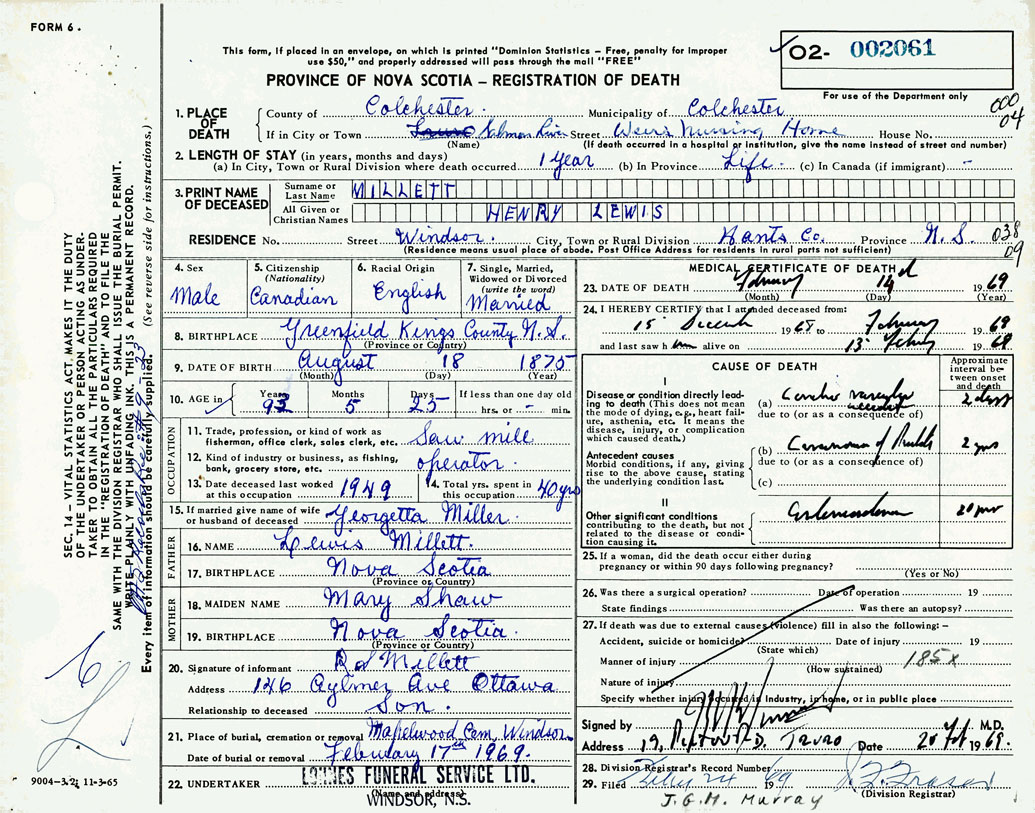 FORM 6.
This form, if placed in an envelope, on which is printed "Dominion Statistics – Free, penalty for improper
use $50," and properly addressed will pass through the mail "FREE"
PROVINCE OF NOVA SCOTIA – REGISTRATION OF DEATH
O2- 002061
For use of the Department only
000
04
1. PLACE OF DEATH County of Colchester. Municipality of Colchester
If in City or Town Truro Salmon River Street Weirs Nursing Home House No.
(Name) (If death occurred in a hospital or institution, give the name instead of street and number)
2. LENGTH OF STAY (in years, months and days)
(a) In City, Town or Rural Division where death occurred 1 year (b) In Province Life. (c) In Canada (if immigrant) -
3. PRINT NAME OF DECEASED
Surname or Last Name MILLETT
All Given or Christian Names HENRY LEWIS
RESIDENCE No. Street Windsor. City, Town or Rural Division Hants Co. Province N.S. 038
09
(Residence means usual place of abode. Post Office Address for residents in rural parts not sufficient)
4. Sex Male
5. Citizenship (Nationality) Canadian
6. Racial Origin English
7. Single, Married, Widowed or Divorced (write the word) Married
8. BIRTHPLACE Greenfield Kings County N.S.
(Province or Country)
9. DATE OF BIRTH August 18 1875
(Month) (Day) (Year)
10. AGE in Years 93 Months 5 Days 25 If less than one day old
hrs. or - min.
OCCUPATION
11. Trade, profession, or kind of work as fisherman, office clerk, sales clerk, etc. Saw mill
12. Kind of industry or business, as fishing, bank, grocery store, etc. operator.
13. Date deceased last worked at this occupation 1949
14. Total yrs. spent in this occupation 40 yrs
15. If married give name of wife or husband of deceased Georgetta Miller.
FATHER
16. NAME Lewis Millett.
17. BIRTHPLACE Nova Scotia
(Province or Country)
MOTHER
18. MAIDEN NAME Mary Shaw
19. BIRTHPLACE Nova Scotia.
(Province or Country)
20. Signature of informant Millett
Address 126 Aylmer Ave Ottawa
Relationship to deceased Son.
21. Place of burial, cremation or removal Mapelwood Cem, Windsor
Date of burial or removal February 17th 1969.
22. UNDERTAKER FUNERAL SERVICE LTD.
(Name and address)
WINDSOR, N.S.
9004-3.2; 11-3-65
MEDICAL CERTIFICATE OF DEATH
23. DATE OF DEATH February 14 1969
(Month) (Day) (Year)
24. I HEREBY CERTIFY that I attended deceased from:
15 December 1968 to February 1969
and last saw h alive on 13 1969
CAUSE OF DEATH
Approximate interval between onset and death
I
Disease or condition directly leading to death (This does not mean the mode of dying, e.g., heart failure, asthenia, etc. It means the disease, injury, or complication which caused death.)
(a) 2 days
due to (or as a consequence of)
Antecedent causes
Morbid conditions, if any, giving rise to the above cause, stating the underlying condition last.
(b) Carcinoma of 2 yrs
due to (or as a consequence of)
(c)
II
Other significant conditions contributing to the death, but not related to the disease or condition causing it.
25. If a woman, did the death occur either during pregnancy or within 90 days following pregnancy?
(Yes or No)
26. Was there a surgical operation? Date of operation 19
State findings Was there an autopsy?
27. If death was due to external causes (violence) fill in also the following: –
Accident, suicide or homicide? Date of injury 19
(State which)
Manner of injury 185X
(How sustained)
Nature of injury
Specify whether injury occurred in industry, in home, or in public place
Signed by M.D.
Address TRURO Date 20 Feb 1969.
28. Division Registrar's Record Number
29. Filed Feby 24 1969 Fraser
(Division Registrar)
J.G.H. Murray
SEC. 14 – VITAL STATISTICS ACT MAKES IT THE DUTY
OF THE UNDERTAKER OR PERSON ACTING AS UNDER-
TAKER TO OBTAIN ALL THE PARTICULARS REQUIRED
IN THE "REGISTRATION OF DEATH" AND TO FILE THE
SAME WITH THE DIVISION REGISTRAR WHO SHALL ISSUE THE BURIAL PERMIT.
WRITE PLAINLY WITH UNFADING INK. THIS IS A PERMANENT RECORD.
Every item of information should be carefully supplied. (See reverse side for instructions.)